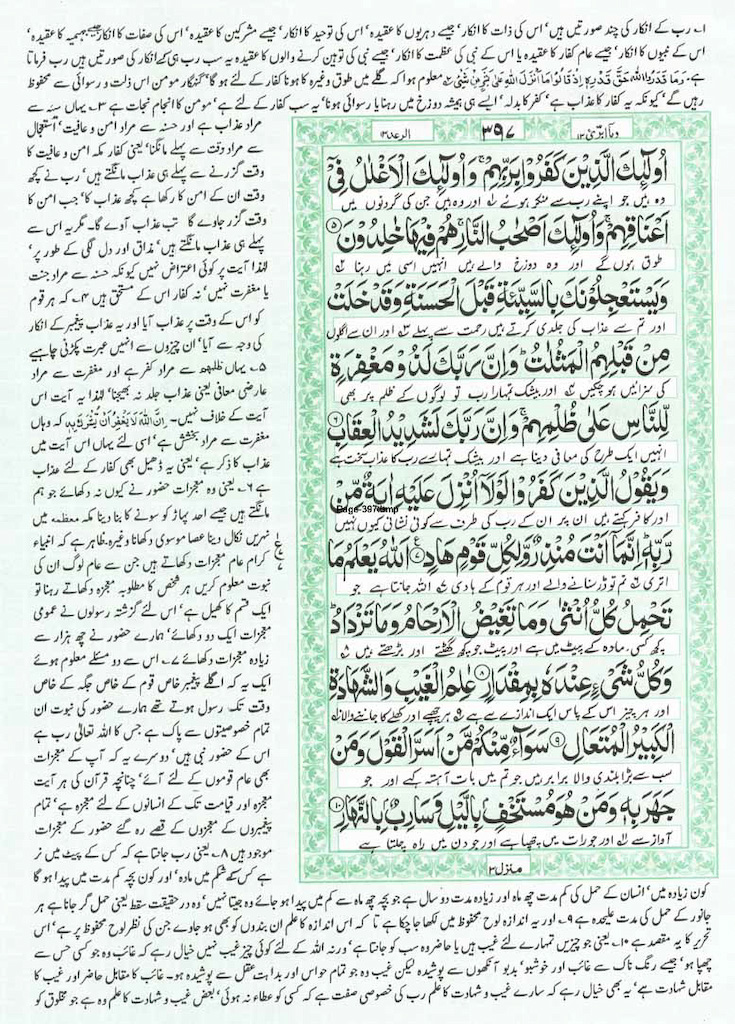 ۱۔ رب کے انکار کی چند صورتیں ہیں' اس کی ذات کا انکار' جیسے دہریوں کا عقیدہ' اس کی توحید کا انکار' جیسے مشرکین کا عقیدہ' اس کی صفات کا انکار جیسے جہمیہ کا عقیدہ'
اس کے نبیوں کا انکار' جیسے عام کفار کا عقیدہ یا اس کے نبی کی عظمت کا انکار' جیسے نبی کی توہین کرنے والوں کا عقیدہ یہ سب رب ہی کے انکار کی صورتیں ہیں رب فرماتا
ہے۔ معلوم ہوا کہ گلے میں طوق وغیرہ کا ہونا کفار کے لئے ہو گا' گنہگار مومن اس ذلت و رسوائی سے محفوظ
رہیں گے' کیونکہ یہ کفار کا عذاب ہے' کفر کا بدلہ' ایسے ہی ہمیشہ دوزخ میں رہنا یا رسوائی ہونا' یہ سب کفار کے لئے ہے' مومن کا انجام نجات ہے ۳۔ یہاں سیئہ سے
وما ابرئ ۱۳
۳۹۷
الرعد ۱۳
اُولٰٓئِكَ الَّذِيْنَ كَفَرُوْا بِرَبِّهِمْ ۚ وَاُولٰٓئِكَ الْاَغْلٰلُ فِيْٓ
وہ ہیں جو اپنے رب سے منکر ہوئے ۱ اور وہ ہیں جن کی گردنوں میں
اَعْنَاقِهِمْ ۚ وَاُولٰٓئِكَ اَصْحٰبُ النَّارِ ۚ هُمْ فِيْهَا خٰلِدُوْنَ ۵
طوق ہوں گے اور وہ دوزخ والے ہیں انہیں اسی میں رہنا ۲
وَيَسْتَعْجِلُوْنَكَ بِالسَّيِّئَةِ قَبْلَ الْحَسَنَةِ وَقَدْ خَلَتْ
اور تم سے عذاب کی جلدی کرتے ہیں رحمت سے پہلے ۳ اور ان سے اگلوں
مِنْ قَبْلِهِمُ الْمَثُلٰتُ ؕ وَاِنَّ رَبَّكَ لَذُوْ مَغْفِرَةٍ
کی سزائیں ہو چکیں ۴ اور بیشک تمہارا رب تو لوگوں کے ظلم پر بھی
لِّلنَّاسِ عَلٰى ظُلْمِهِمْ ۚ وَاِنَّ رَبَّكَ لَشَدِيْدُ الْعِقَابِ ۶
انہیں ایک طرح کی معافی دیتا ہے اور بیشک تمہارے رب کا عذاب سخت ہے
وَيَقُوْلُ الَّذِيْنَ كَفَرُوْا لَوْلَآ اُنْزِلَ عَلَيْهِ اٰيَةٌ مِّنْ
Page-397.bmp
اور کافر کہتے ہیں ان پر ان کے رب کی طرف سے کوئی نشانی کیوں نہیں
رَّبِّهٖ ؕ اِنَّمَآ اَنْتَ مُنْذِرٌ وَّلِكُلِّ قَوْمٍ هَادٍ ۷ اَللّٰهُ يَعْلَمُ مَا
اتری ۶ تم تو ڈر سنانے والے اور ہر قوم کے ہادی ۷ اللہ جانتا ہے جو
تَحْمِلُ كُلُّ اُنْثٰى وَمَا تَغِيْضُ الْاَرْحَامُ وَمَا تَزْدَادُ ؕ
کچھ کسی مادہ کے پیٹ میں ہے اور پیٹ جو کچھ گھٹتے اور بڑھتے ہیں ۸
وَكُلُّ شَىْءٍ عِنْدَهٗ بِمِقْدَارٍ ۸ عٰلِمُ الْغَيْبِ وَالشَّهَادَةِ
اور ہر چیز اس کے پاس ایک اندازے سے ہے ۹ ہر چھپے اور کھلے کا جاننے والا ۱۰
الْكَبِيْرُ الْمُتَعَالِ ۹ سَوَآءٌ مِّنْكُمْ مَّنْ اَسَرَّ الْقَوْلَ وَمَنْ
سب سے بڑا بلندی والا برابر ہیں جو تم میں بات آہستہ کہے اور جو
جَهَرَ بِهٖ وَمَنْ هُوَ مُسْتَخْفٍۢ بِالَّيْلِ وَسَارِبٌۢ بِالنَّهَارِ ۱۰
آواز سے ۱۱ اور جو رات میں چھپا ہے اور جو دن میں راہ چلتا ہے
منزل ۳
مراد عذاب ہے اور حسنہ سے مراد امن و عافیت' استعجال
سے مراد وقت سے پہلے مانگنا' یعنی کفار مکہ امن و عافیت کا
وقت گزرنے سے پہلے ہی عذاب مانگتے ہیں' رب نے کچھ
وقت ان کے امن کا رکھا ہے کچھ عذاب کا' جب امن کا
وقت گزر جاوے گا تب عذاب آوے گا۔ مگر یہ اس سے
پہلے ہی عذاب مانگتے ہیں' مذاق اور دل لگی کے طور پر'
لہٰذا آیت پر کوئی اعتراض نہیں کیونکہ حسنہ سے مراد جنت
یا مغفرت نہیں' نہ کفار اس کے مستحق ہیں ۴۔ کہ ہر قوم
کو اس کے وقت پر عذاب آیا اور یہ عذاب پیغمبر کے انکار
کی وجہ سے آیا' ان چیزوں سے انہیں عبرت پکڑنی چاہیے
۵۔ یہاں ظلم سے مراد کفر ہے اور مغفرت سے مراد
عارضی معافی یعنی عذاب جلد نہ بھیجنا' لہٰذا یہ آیت اس
آیت کے خلاف نہیں۔ اِنَّ اللّٰهَ لَا يَغْفِرُ اَنْ يُّشْرَكَ بِهٖ کہ وہاں
مغفرت سے مراد بخشش ہے' اسی لئے یہاں اس آیت میں
عذاب کا ذکر ہے' یعنی یہ ڈھیل بھی کفار کے لئے عذاب
ہے ۶۔ یعنی وہ معجزات حضور نے کیوں نہ دکھائے جو ہم
مانگتے ہیں جیسے احد پہاڑ کو سونے کا بنا دینا مکہ معظمہ میں
نہریں نکال دینا عصا موسوی دکھانا وغیرہ۔ ظاہر ہے کہ انبیاء
کرام عام معجزات دکھاتے ہیں جن سے عام لوگ ان کی
نبوت معلوم کریں ہر شخص کا مطلوبہ معجزہ دکھاتے رہنا تو
ایک قسم کا کھیل ہے' اس لئے گزشتہ رسولوں نے عمومی
معجزات ایک دو دکھائے' ہمارے حضور نے چھ ہزار سے
زیادہ معجزات دکھائے ۷۔ اس سے دو مسئلے معلوم ہوئے
ایک یہ کہ اگلے پیغمبر خاص قوم کے خاص جگہ کے خاص
وقت تک رسول ہوتے تھے ہمارے حضور کی نبوت ان
تمام خصوصیتوں سے پاک ہے جس کا اللہ تعالیٰ رب ہے
اس کے حضور نبی ہیں' دوسرے یہ کہ آپ کے معجزات
بھی عام قوموں کے لئے آئے' چنانچہ قرآن کی ہر آیت
معجزہ اور قیامت تک کے انسانوں کے لئے معجزہ ہے' تمام
پیغمبروں کے معجزوں کے قصے رہ گئے حضور کے معجزات
موجود ہیں ۸۔ یعنی رب جانتا ہے کہ کس کے پیٹ میں نر
ہے کس کے شکم میں مادہ' اور کون بچہ کم مدت میں پیدا ہو گا
کون زیادہ میں' انسان کے حمل کی کم مدت چھ ماہ اور زیادہ مدت دو سال ہے جو بچہ چھ ماہ سے کم میں پیدا ہو جائے وہ جیتا نہیں' وہ در حقیقت سقط یعنی حمل گر جانا ہے ہر
جانور کے حمل کی مدت علیحدہ ہے ۹۔ اور یہ اندازہ لوح محفوظ میں لکھا جا چکا ہے تا کہ اس اندازہ کا علم ان بندوں کو بھی ہو جاوے جن کی نظر لوح محفوظ پر ہے' اس
تحریر کا یہ مقصد ہے ۱۰۔ یعنی جو چیزیں تمہارے لئے غیب ہیں یا حاضر وہ سب کو جانتا ہے' ورنہ اللہ کے لئے کوئی چیز غیب نہیں خیال رہے کہ غائب وہ جو کسی حس سے
چھپا ہو' جیسے رنگ ناک سے غائب اور خوشبو' بدبو آنکھوں سے پوشیدہ لیکن غیب وہ جو تمام حواس اور بداہت عقل سے پوشیدہ ہو۔ غائب کا مقابل حاضر اور غیب کا
مقابل شہادت ہے' یہ بھی خیال رہے کہ سارے غیب و شہادت کا علم رب کی خصوصی صفت ہے کہ کسی کو عطا نہ ہوئی' بعض غیب و شہادت کا علم وہ ہے جو مخلوق کو